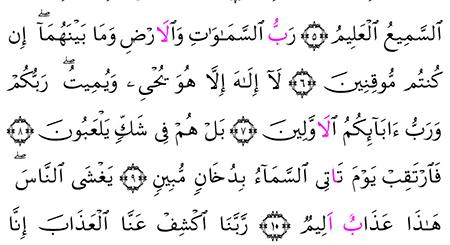 السَّمِيعُ الْعَلِيمُ ۝٥ رَبُّ السَّمَـٰوَٰتِ وَالَارْضِ وَمَا بَيْنَهُمَآۖ إِن
كُنتُم مُّوقِنِينَ ۝٦ لَآ إِلَـٰهَ إِلَّا هُوَ يُحْيِۦ وَيُمِيتُۖ رَبُّكُمْ
وَرَبُّ ءَابَآئِكُمُ الَاوَّلِينَ ۝٧ بَلْ هُمْ فِى شَكٍّ يَلْعَبُونَ ۝٨
فَارْتَقِبْ يَوْمَ تَاتِى السَّمَآءُ بِدُخَانٍ مُّبِينٍ ۝٩ يَغْشَى النَّاسَۖ
هَـٰذَا عَذَابٌ اَلِيمٌ ۝١٠ رَّبَّنَا اَكْشِفْ عَنَّا الْعَذَابَ إِنَّا